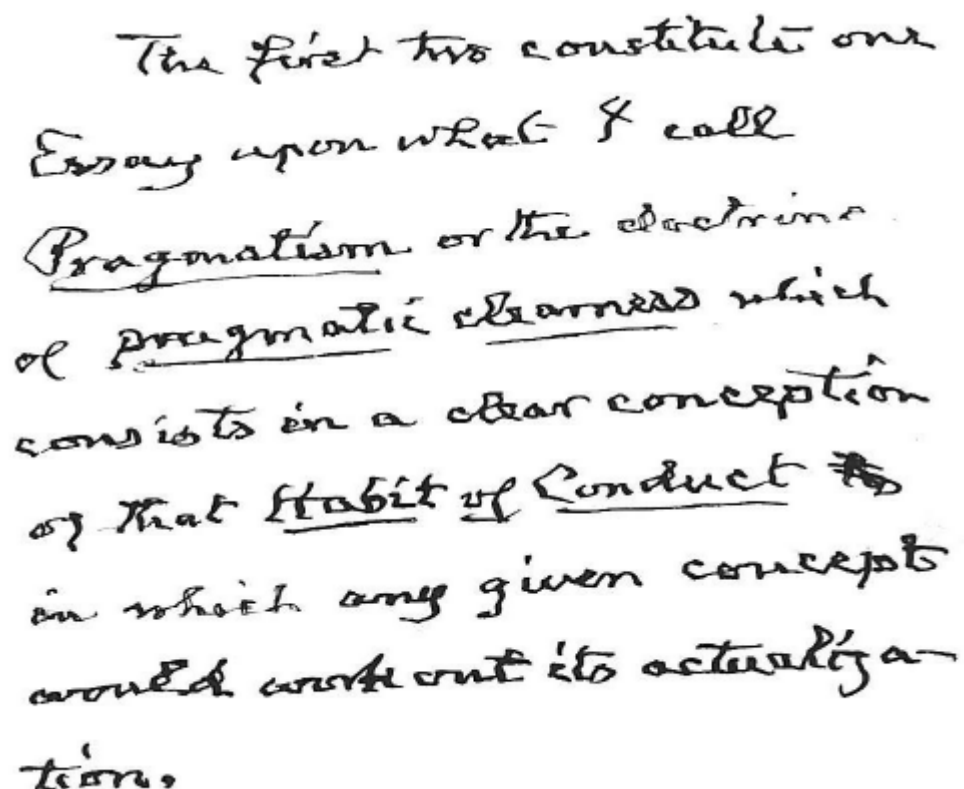 The first two constitute one
Essay upon what I call
Pragmatism or the doctrine
of pragmatic clearness which
consists in a clear conception
of that Habit of Conduct
in which any given concept
would work out its actualiza-
tion.